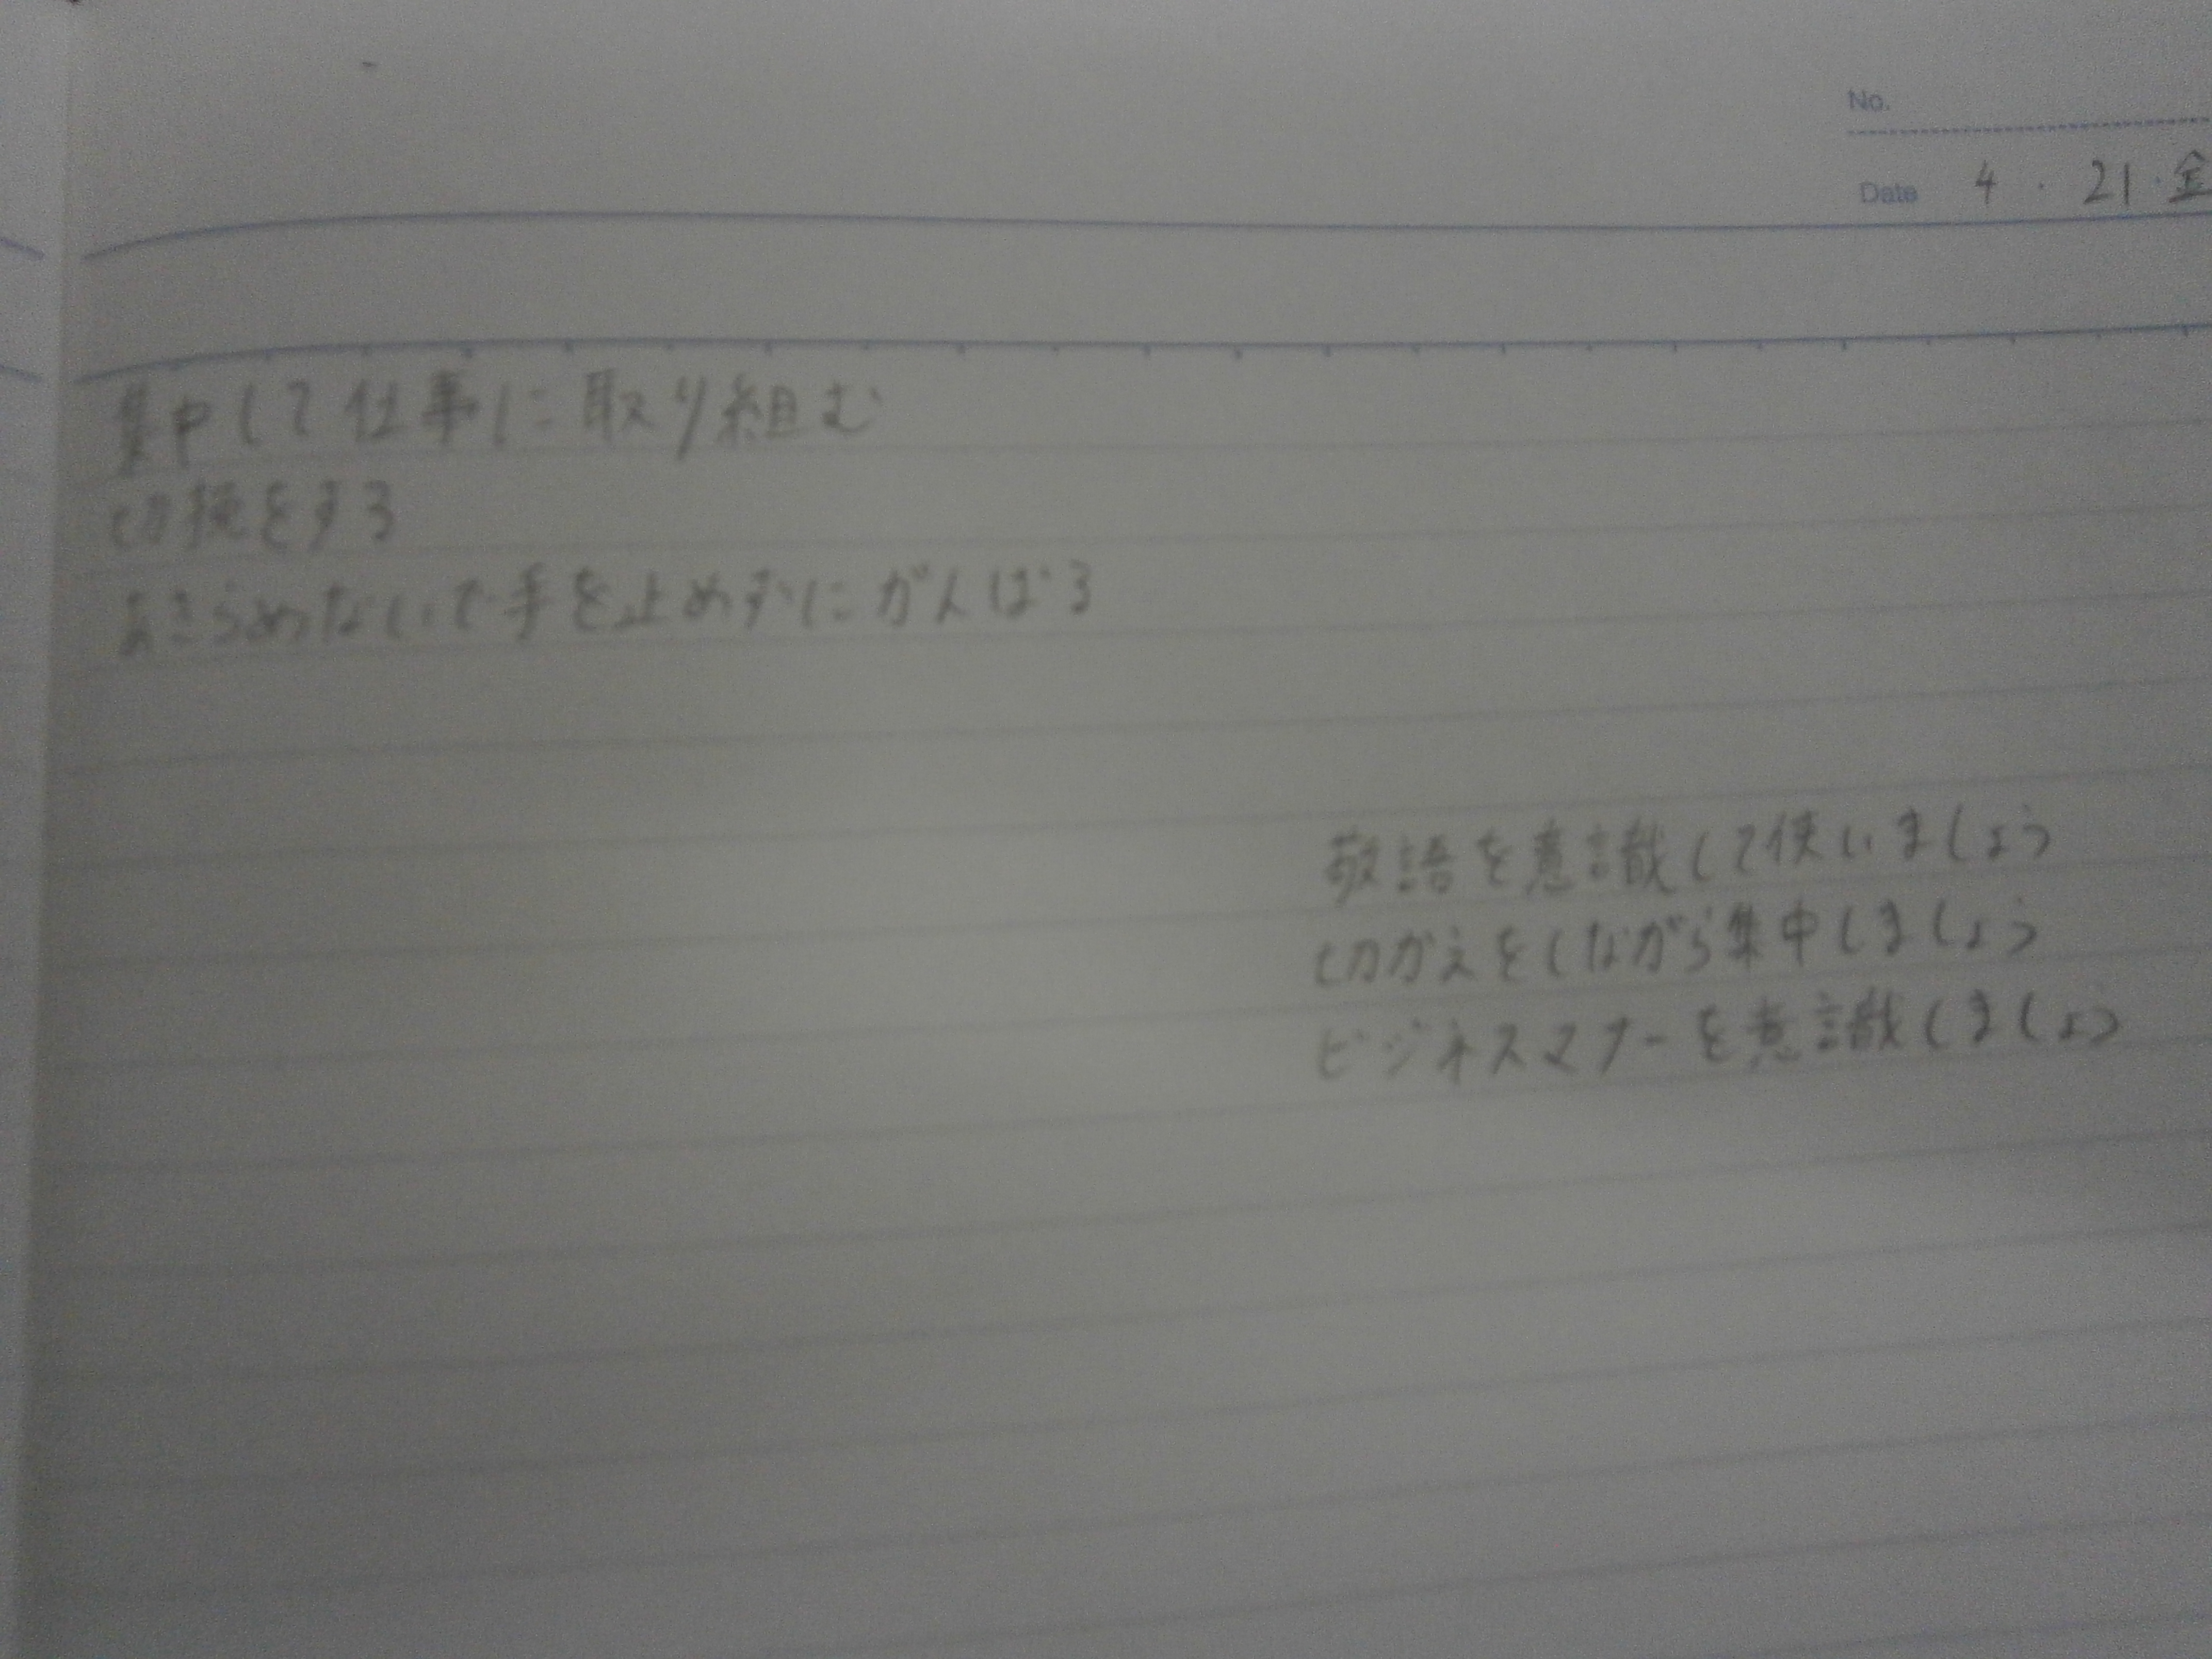 No.
Date 4・21・金
集中して仕事に取り組む
切換をする
あきらめないで手を止めずにがんばる
敬語を意識して使いましょう
切かえをしながら集中しましょう
ビジネスマナーを意識しましょう